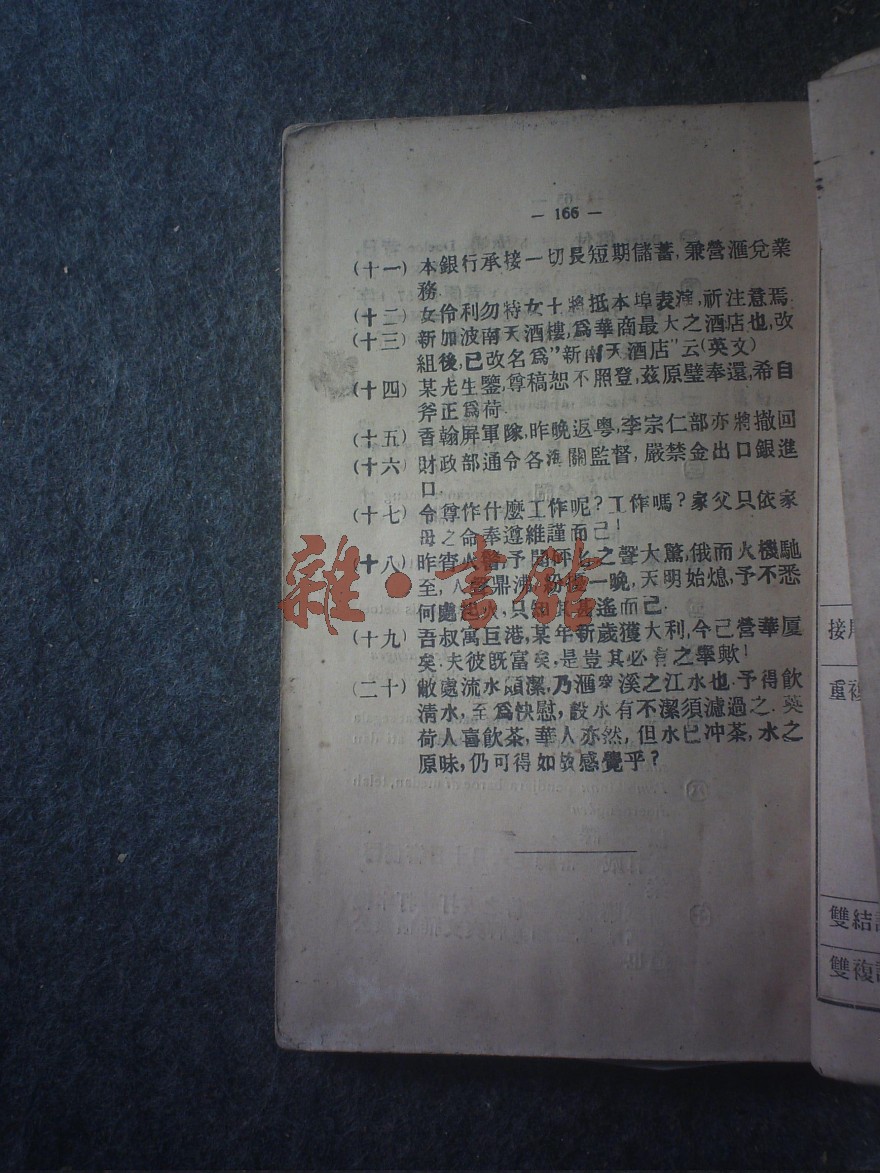 — 166 —
(十一) 本銀行承接一切長短期儲蓄,兼營滙兌業
務.
(十二) 女伶利勿特女士將抵本埠表演,祈注意焉.
(十三) 新加波南天酒樓,爲華商最大之酒店也,改
組後,已改名爲"新南天酒店"云(英文)
(十四) 某先生鑒,尊稿恕不照登,茲原璧奉還,希自
斧正爲荷.
(十五) 香翰屏軍隊,昨晚返粵,李宗仁部亦將撤回
(十六) 財政部通令各海關監督,嚴禁金出口銀進
口
(十七) 令尊作什麽工作呢?工作嗎?家父只依家
母之命奉遵維謹而己!
(十八) 昨宵火警,予聞 之聲大驚,俄而火機馳
至,人聲鼎沸, 一晚,天明始熄,予不悉
何處起火,只知其甚遙而已.
(十九) 吾叔寓巨港,某年新歲獲大利,今己營華厦
矣.夫彼既富矣,是豈其必有之擧歟!
(二十) 敝處流水頗潔,乃滙 溪之江水也.予得飲
清水,至爲快慰,設水有不潔須濾過之.英
荷人喜飲茶,華人亦然,但水已冲茶,水之
原味,仍可得如故感覺乎?
雜·書館
接
重複
雙結
雙複